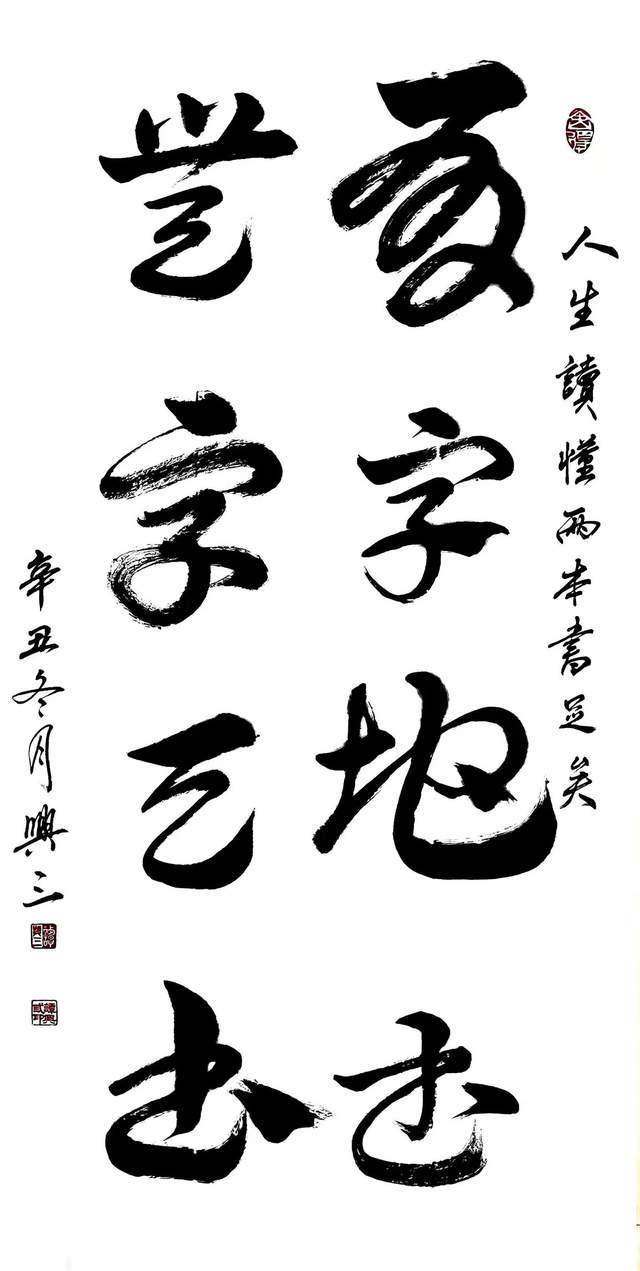 人生讀懂兩本書足矣
有字地书
無字天书
辛丑冬月興三